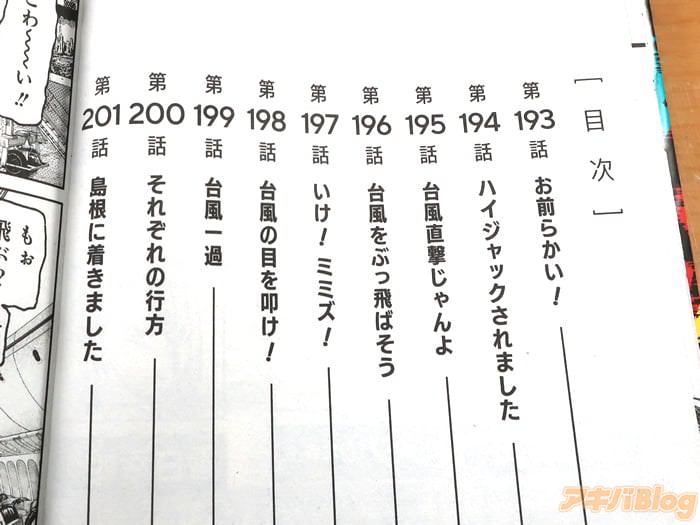 [目次]
第193話 お前らかい!
第194話 ハイジャックされました
第195話 台風直撃じゃんよ
第196話 台風をぶっ飛ばそう
第197話 いけ!ミミズ!
第198話 台風の目を叩け!
第199話 台風一過
第200話 それぞれの行方
第201話 島根に着きました
わ〜〜〜い!!
もぉ
飛ぶ?
アキバBlog